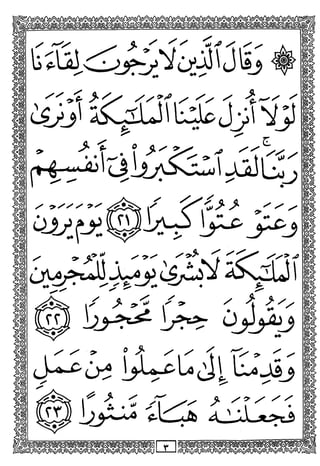 ۞ وَقَالَ ٱلَّذِينَ لَا يَرْجُونَ لِقَآءَنَا
لَوْلَآ أُنزِلَ عَلَيْنَا ٱلْمَلَـٰٓئِكَةُ أَوْ نَرَىٰ
رَبَّنَا ۗ لَقَدِ ٱسْتَكْبَرُوا۟ فِىٓ أَنفُسِهِمْ
وَعَتَوْ عُتُوًّا كَبِيرًا ٢١ يَوْمَ يَرَوْنَ
ٱلْمَلَـٰٓئِكَةَ لَا بُشْرَىٰ يَوْمَئِذٍ لِّلْمُجْرِمِينَ
وَيَقُولُونَ حِجْرًا مَّحْجُورًا ٢٢
وَقَدِمْنَآ إِلَىٰ مَا عَمِلُوا۟ مِنْ عَمَلٍ
فَجَعَلْنَـٰهُ هَبَآءً مَّنثُورًا ٢٣
٣